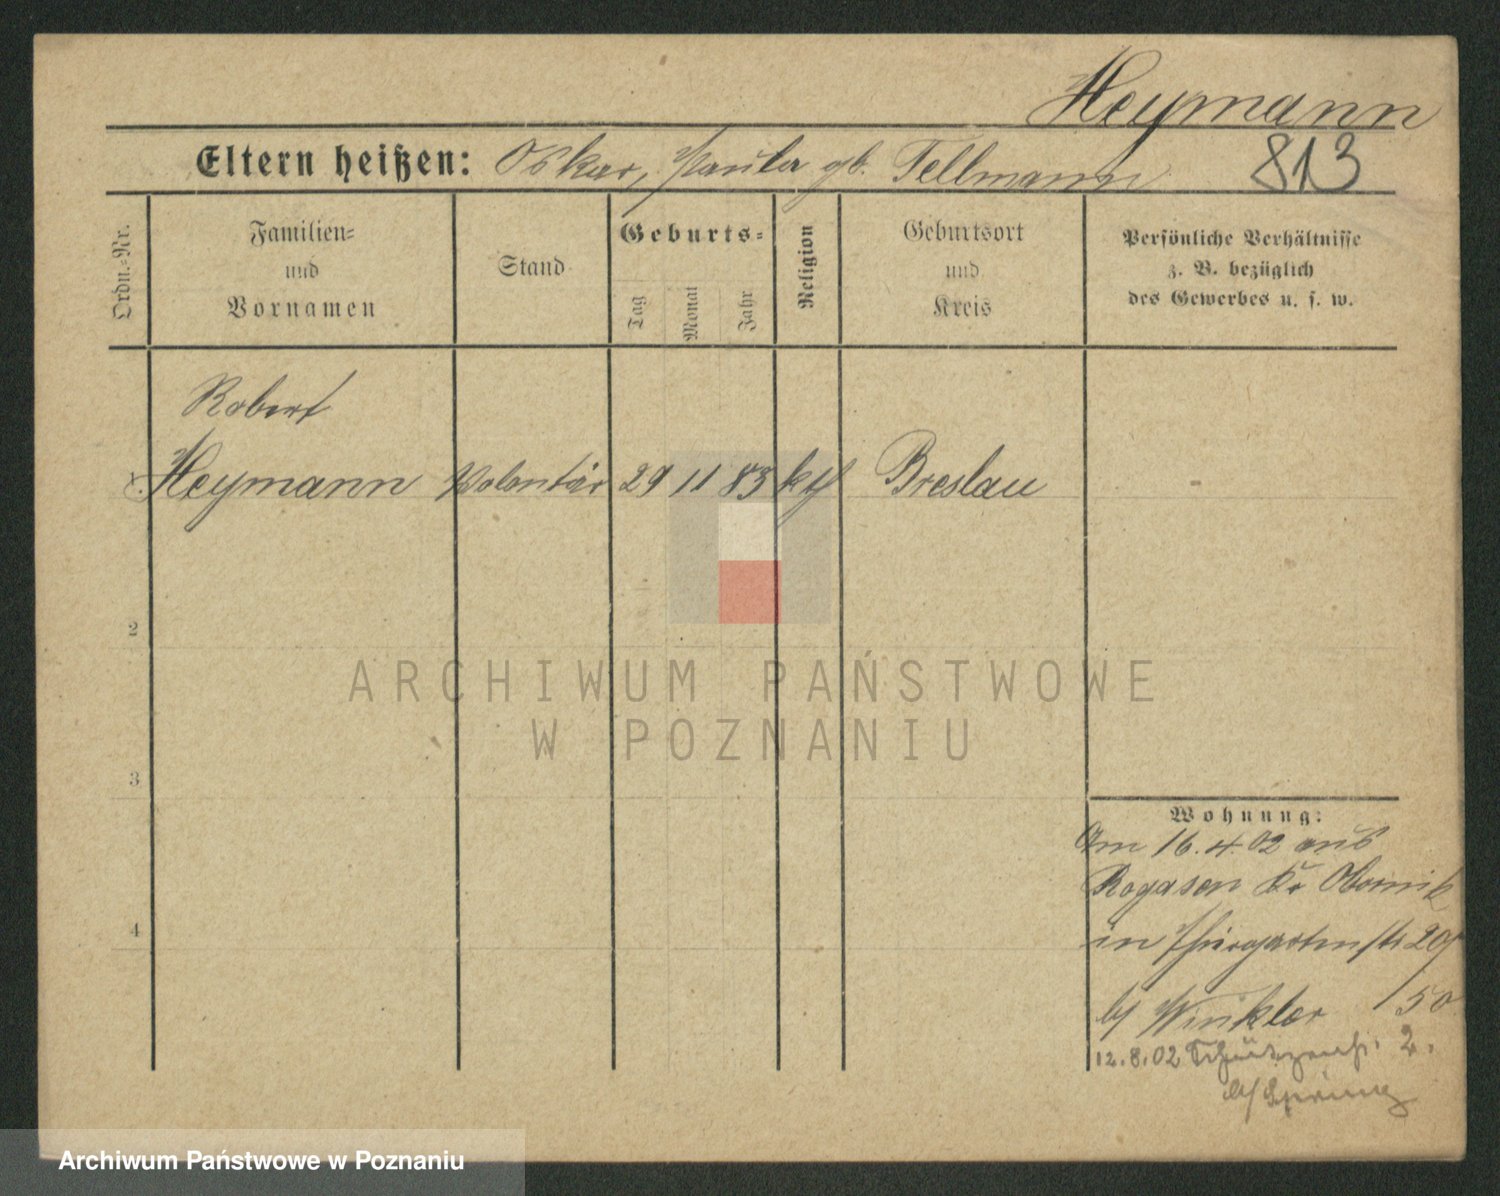 Heymann
Eltern heißen: Oskar, Paula gb. Tellmann 813
Ordn.=Nr.
Familien=
und
Vornamen
Stand
Geburts=
Tag
Monat
Jahr
Religion
Geburtsort
und
Kreis
Persönliche Verhältnisse
z. B. bezüglich
des Gewerbes u. s. w.
Robert
1. Heymann Volontär 29 11 83 kth Breslau -
2
3
4
Wohnung:
Am 16.4.02 aus
Rogasen Kr Obornik
in Thiergartenstr 20
b/ Winkler /50
12.8.02 2.
b/ Spring
ARCHIWUM PAŃSTWOWE
W POZNANIU
Archiwum Państwowe w Poznaniu